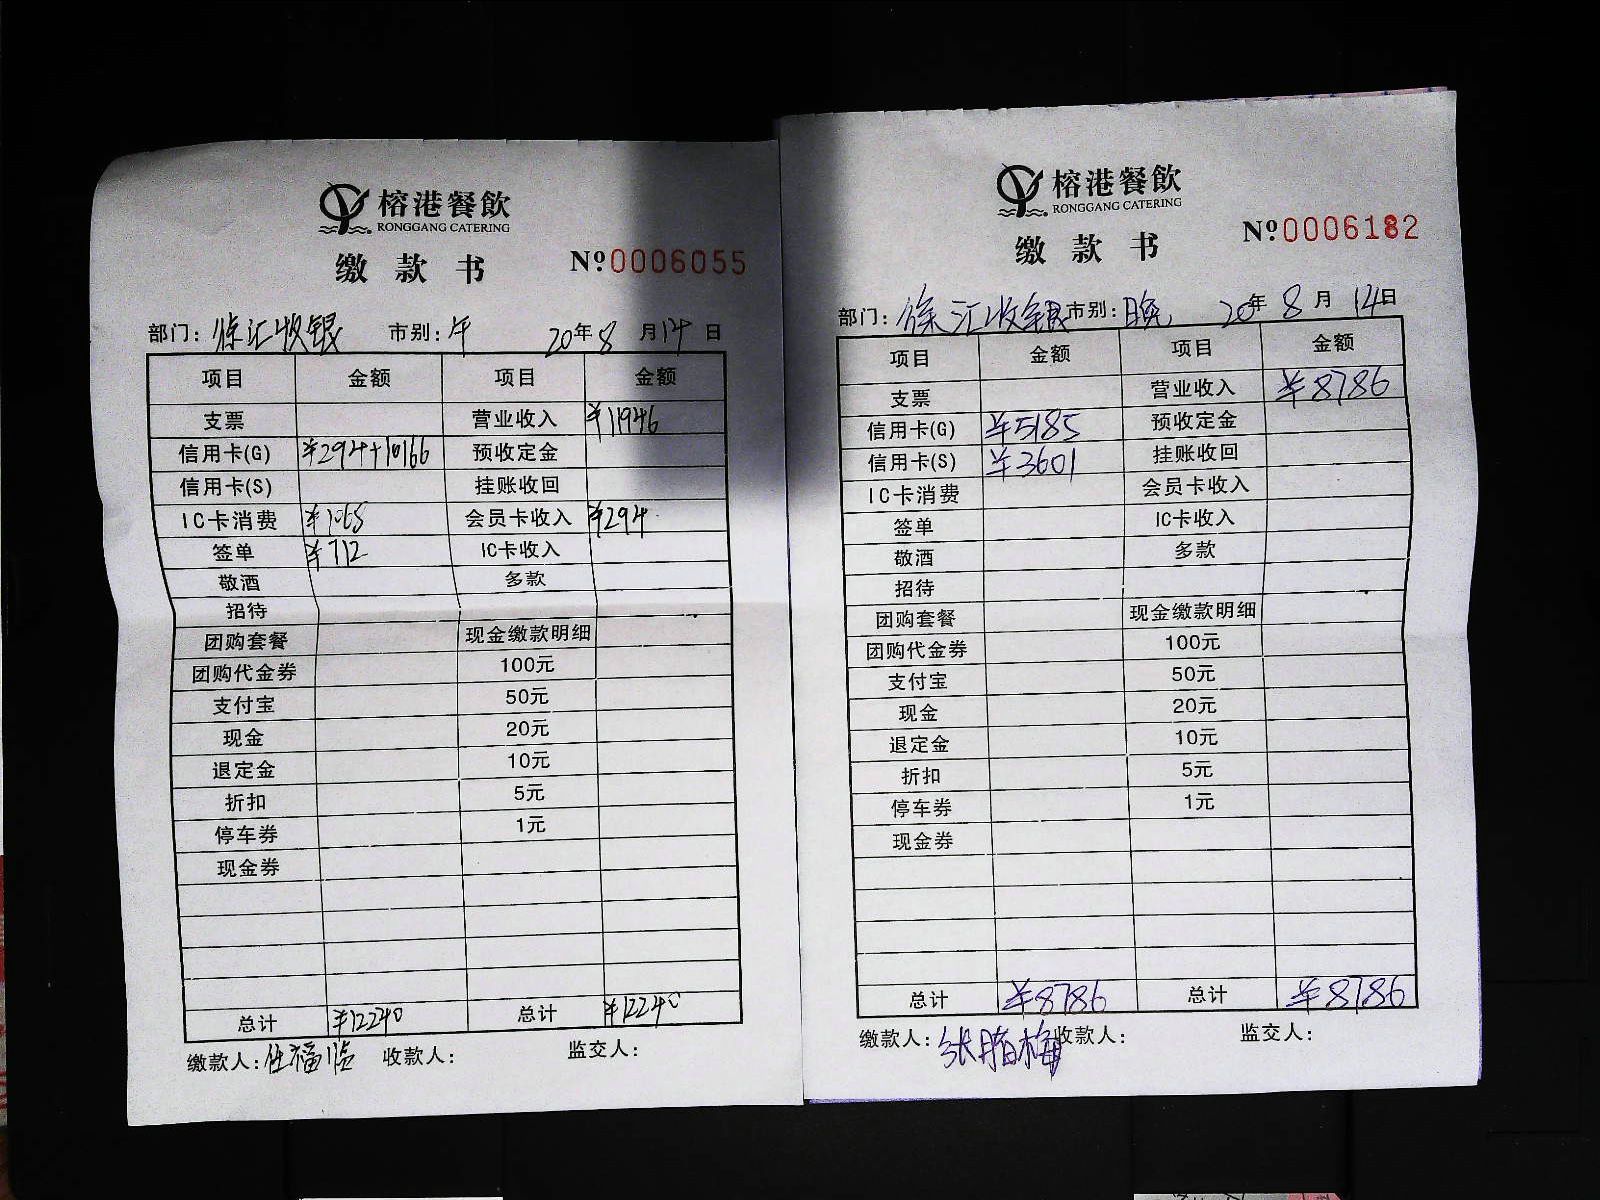 榕港餐飲
RONGGANG CATERING
缴款书
№0006055
部门: 徐汇收银 市别: 午 20年8月14日
项目 金额 项目 金额
支票 营业收入 ¥11946
信用卡(G) ¥294+10166 预收定金
信用卡(S) 挂账收回
IC卡消费 ¥1068 会员卡收入 ¥294
签单 ¥712 IC卡收入
敬酒 多款
招待
团购套餐 现金缴款明细
团购代金券 100元
支付宝 50元
现金 20元
退定金 10元
折扣 5元
停车券 1元
现金券
总计 ¥12240 总计 ¥12240
缴款人: 任福临 收款人: 监交人:
榕港餐飲
RONGGANG CATERING
缴款书
№0006182
部门: 徐汇收银 市别: 晚 20年8月14日
项目 金额 项目 金额
支票 营业收入 ¥8786
信用卡(G) ¥5185 预收定金
信用卡(S) ¥3601 挂账收回
IC卡消费 会员卡收入
签单 IC卡收入
敬酒 多款
招待
团购套餐 现金缴款明细
团购代金券 100元
支付宝 50元
现金 20元
退定金 10元
折扣 5元
停车券 1元
现金券
总计 ¥8786 总计 ¥8786
缴款人: 张腊梅 收款人: 监交人: